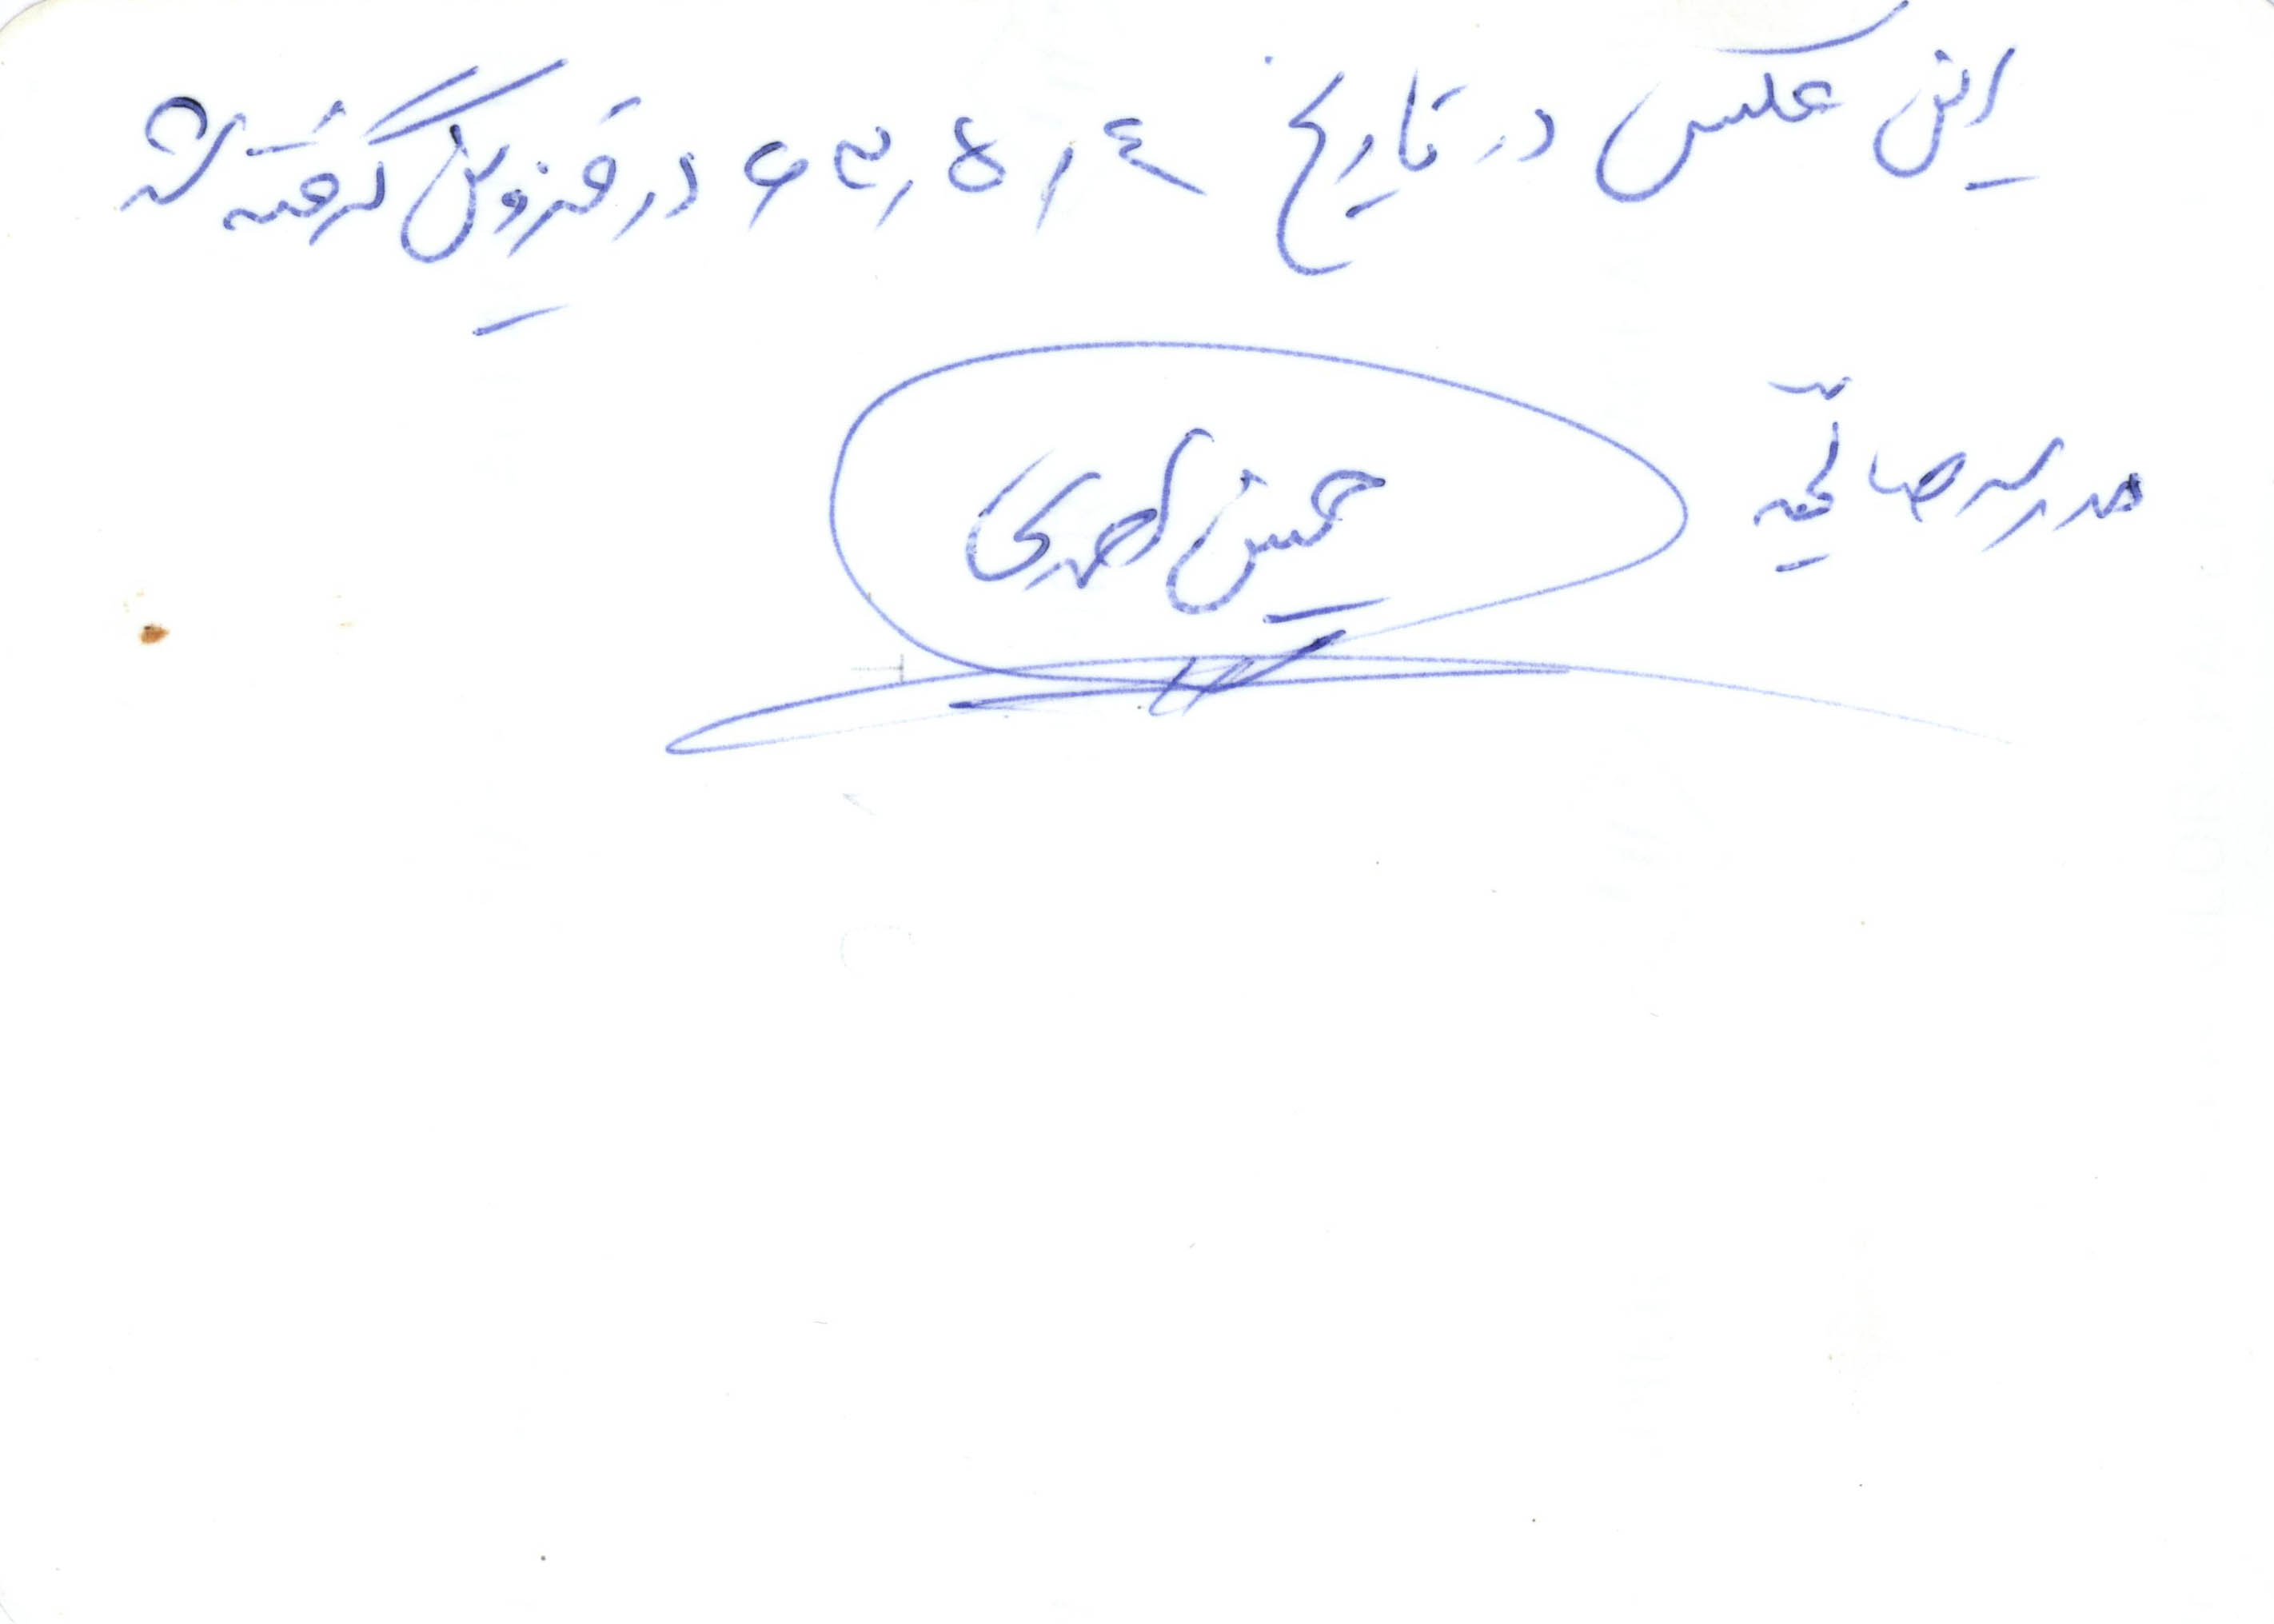 این عکس در تاریخ ۶۳٫۵٫۴ در قزوین گرفته شد
مدرسه صالحیه
محسن احمدی